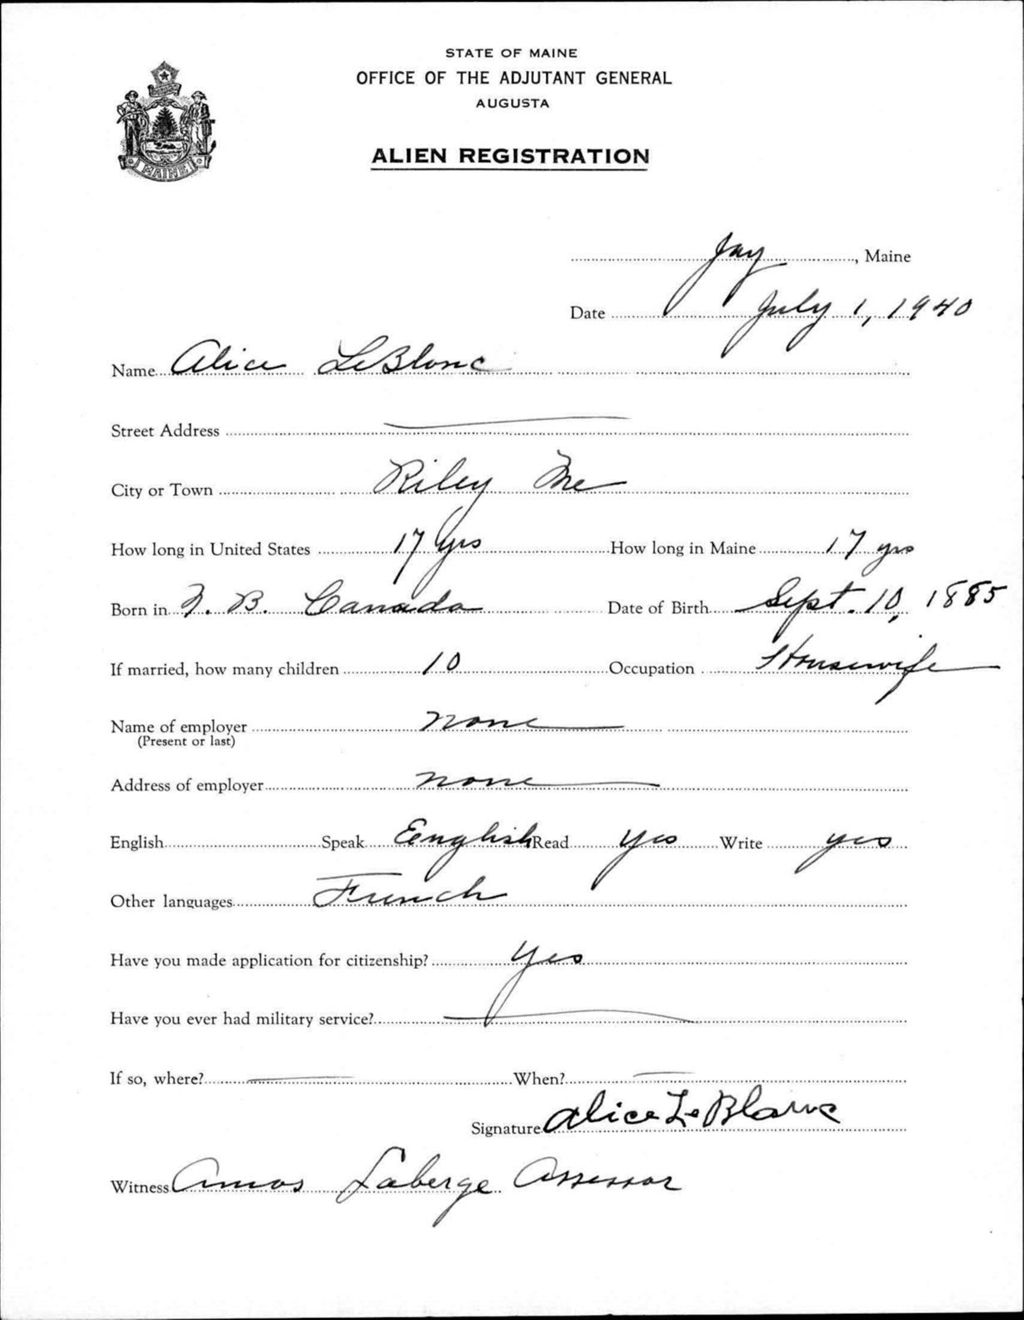 STATE OF MAINE
OFFICE OF THE ADJUTANT GENERAL
AUGUSTA
ALIEN REGISTRATION
MAINE
Jay, Maine
Date July 1, 1940
Name Alice LeBlanc
Street Address
City or Town Riley Me
How long in United States 17 yrs How long in Maine 17 yrs
Born in N. B. Canada Date of Birth Sept. 10, 1885
If married, how many children 10 Occupation Housewife
Name of employer none
(Present or last)
Address of employer none
English Speak English Read yes Write yes
Other languages French
Have you made application for citizenship? Yes
Have you ever had military service?
If so, where? When?
Signature Alice LeBlanc
Witness Amos Laberge Assessor